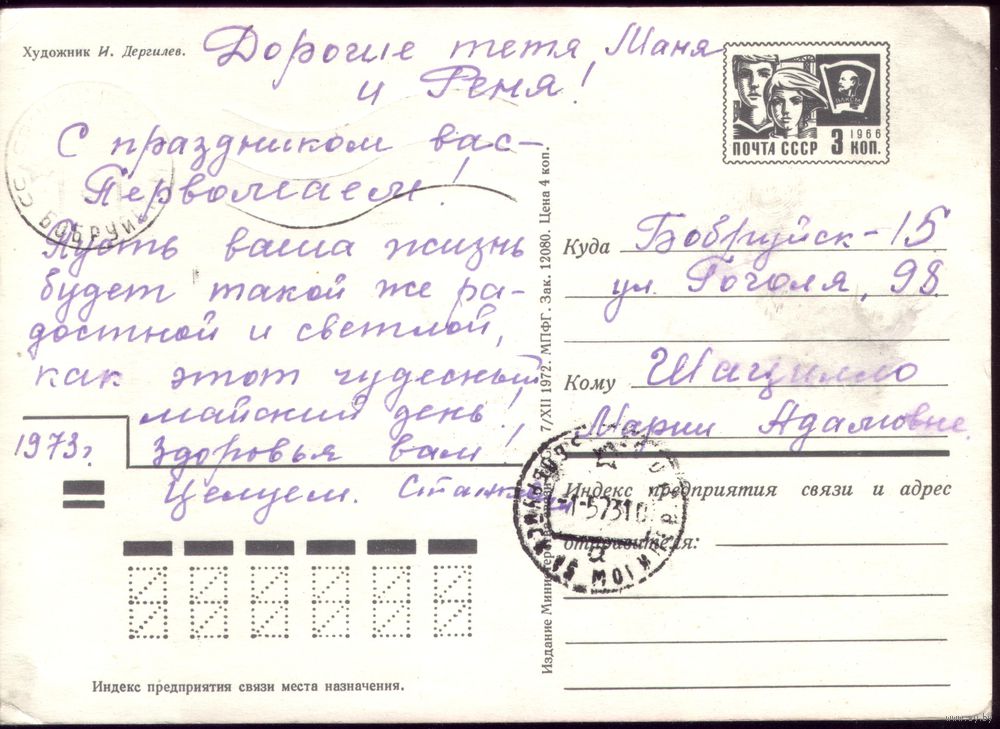 Художник И. Дергилев.
Дорогие тетя Маня
и Реня!
С праздником вас-
Первомаем!
Пусть ваша жизнь
будет такой же ра-
достной и светлой,
как этот чудесный
майский день!
1973г. Здоровья вам!
Целуем.
БОБРУЙ
ПОЧТА СССР 3 КОП.
1966
Куда Бобруйск-15
ул. Гоголя, 98.
Кому Шацилло
Марии Адамовне.
Индекс предприятия связи и адрес
отправителя:
-1-57310
Издание Министерства связи
7/XII 1972. МПФГ. Зак. 12080. Цена 4 коп.
Индекс предприятия связи места назначения.